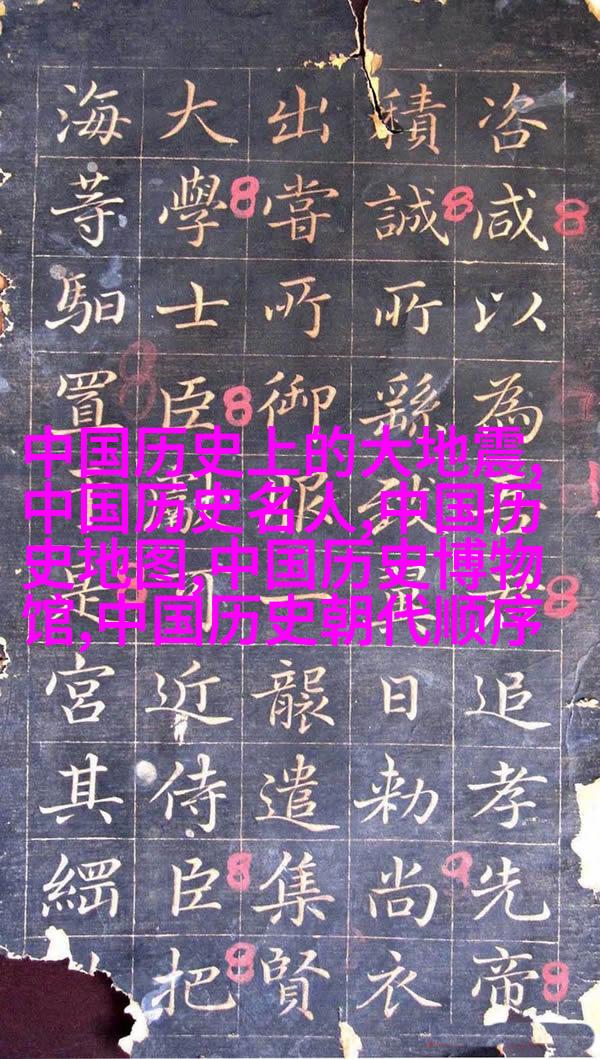 咨咸以為追孝先帝
積誠所繇致日勅尚衣
出嘗所御服一襲遣集賢
大學士臣近侍臣把
海等馹置是宮其綱
中国历史上的大地震,
中国历史名人,中国历
史地图,中国历史博物
馆,中国历史朝代顺序